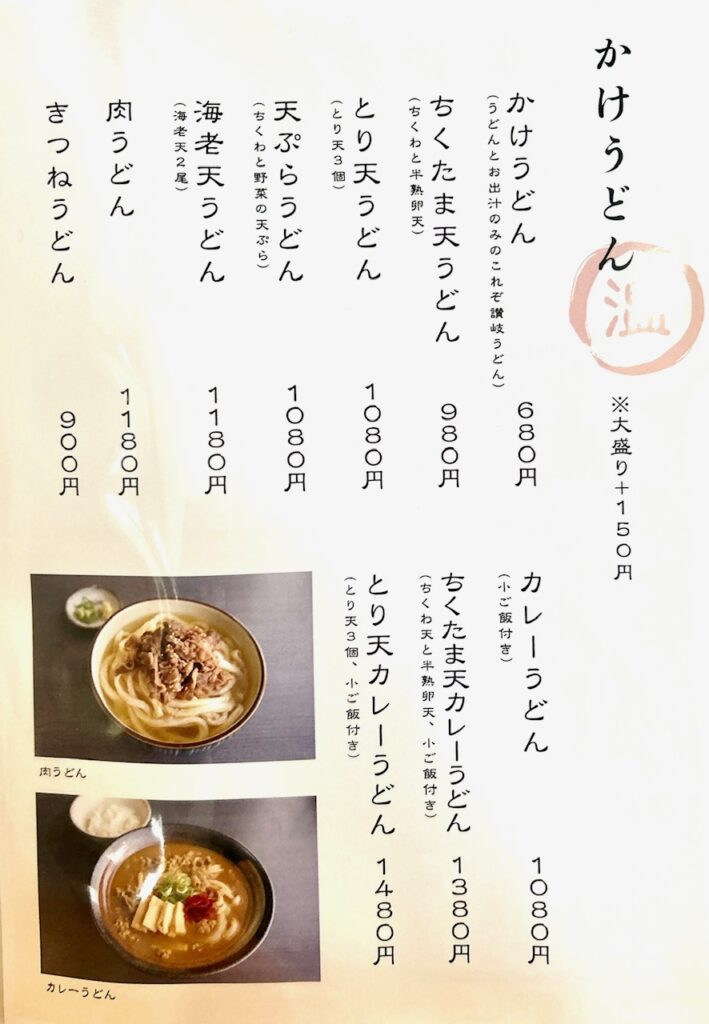 かけうどん
温
※大盛り＋150円
かけうどん
(うどんとお出汁のみのこれぞ讃岐うどん)
680円
ちくたま天うどん
(ちくわと半熟卵天)
980円
とり天うどん
(とり天3個)
1080円
天ぷらうどん
(ちくわと野菜の天ぷら)
1080円
海老天うどん
(海老天2尾)
1180円
肉うどん
1180円
きつねうどん
900円
カレーうどん
(小ご飯付き)
1080円
ちくたま天カレーうどん
(ちくわ天と半熟卵天、小ご飯付き)
1380円
とり天カレーうどん
(とり天3個、小ご飯付き)
1480円
肉うどん
カレーうどん